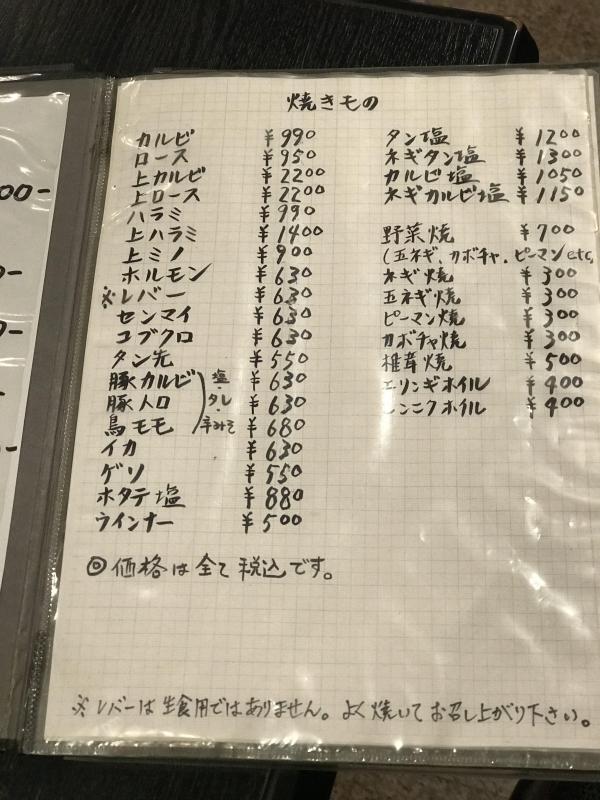 焼きもの
カルビ ¥990
ロース ¥950
上カルビ ¥2200
上ロース ¥2200
ハラミ ¥990
上ハラミ ¥1400
上ミノ ¥900
ホルモン ¥630
※レバー ¥630
センマイ ¥630
コブクロ ¥630
タン先 ¥550
豚カルビ ¥630
豚トロ ¥630
鳥モモ ¥680
塩・タレ・辛みそ
イカ ¥630
ゲソ ¥550
ホタテ塩 ¥880
ウインナー ¥500
タン塩 ¥1200
ネギタン塩 ¥1300
カルビ塩 ¥1050
ネギカルビ塩 ¥1150
野菜焼 ¥700
(玉ネギ、カボチャ、ピーマンetc,
ネギ焼 ¥300
玉ネギ焼 ¥300
ピーマン焼 ¥300
カボチャ焼 ¥300
椎茸焼 ¥500
エリンギホイル ¥400
ニンニクホイル ¥400
◎価格は全て税込です。
※レバーは生食用ではありません。よく焼いてお召し上がり下さい。